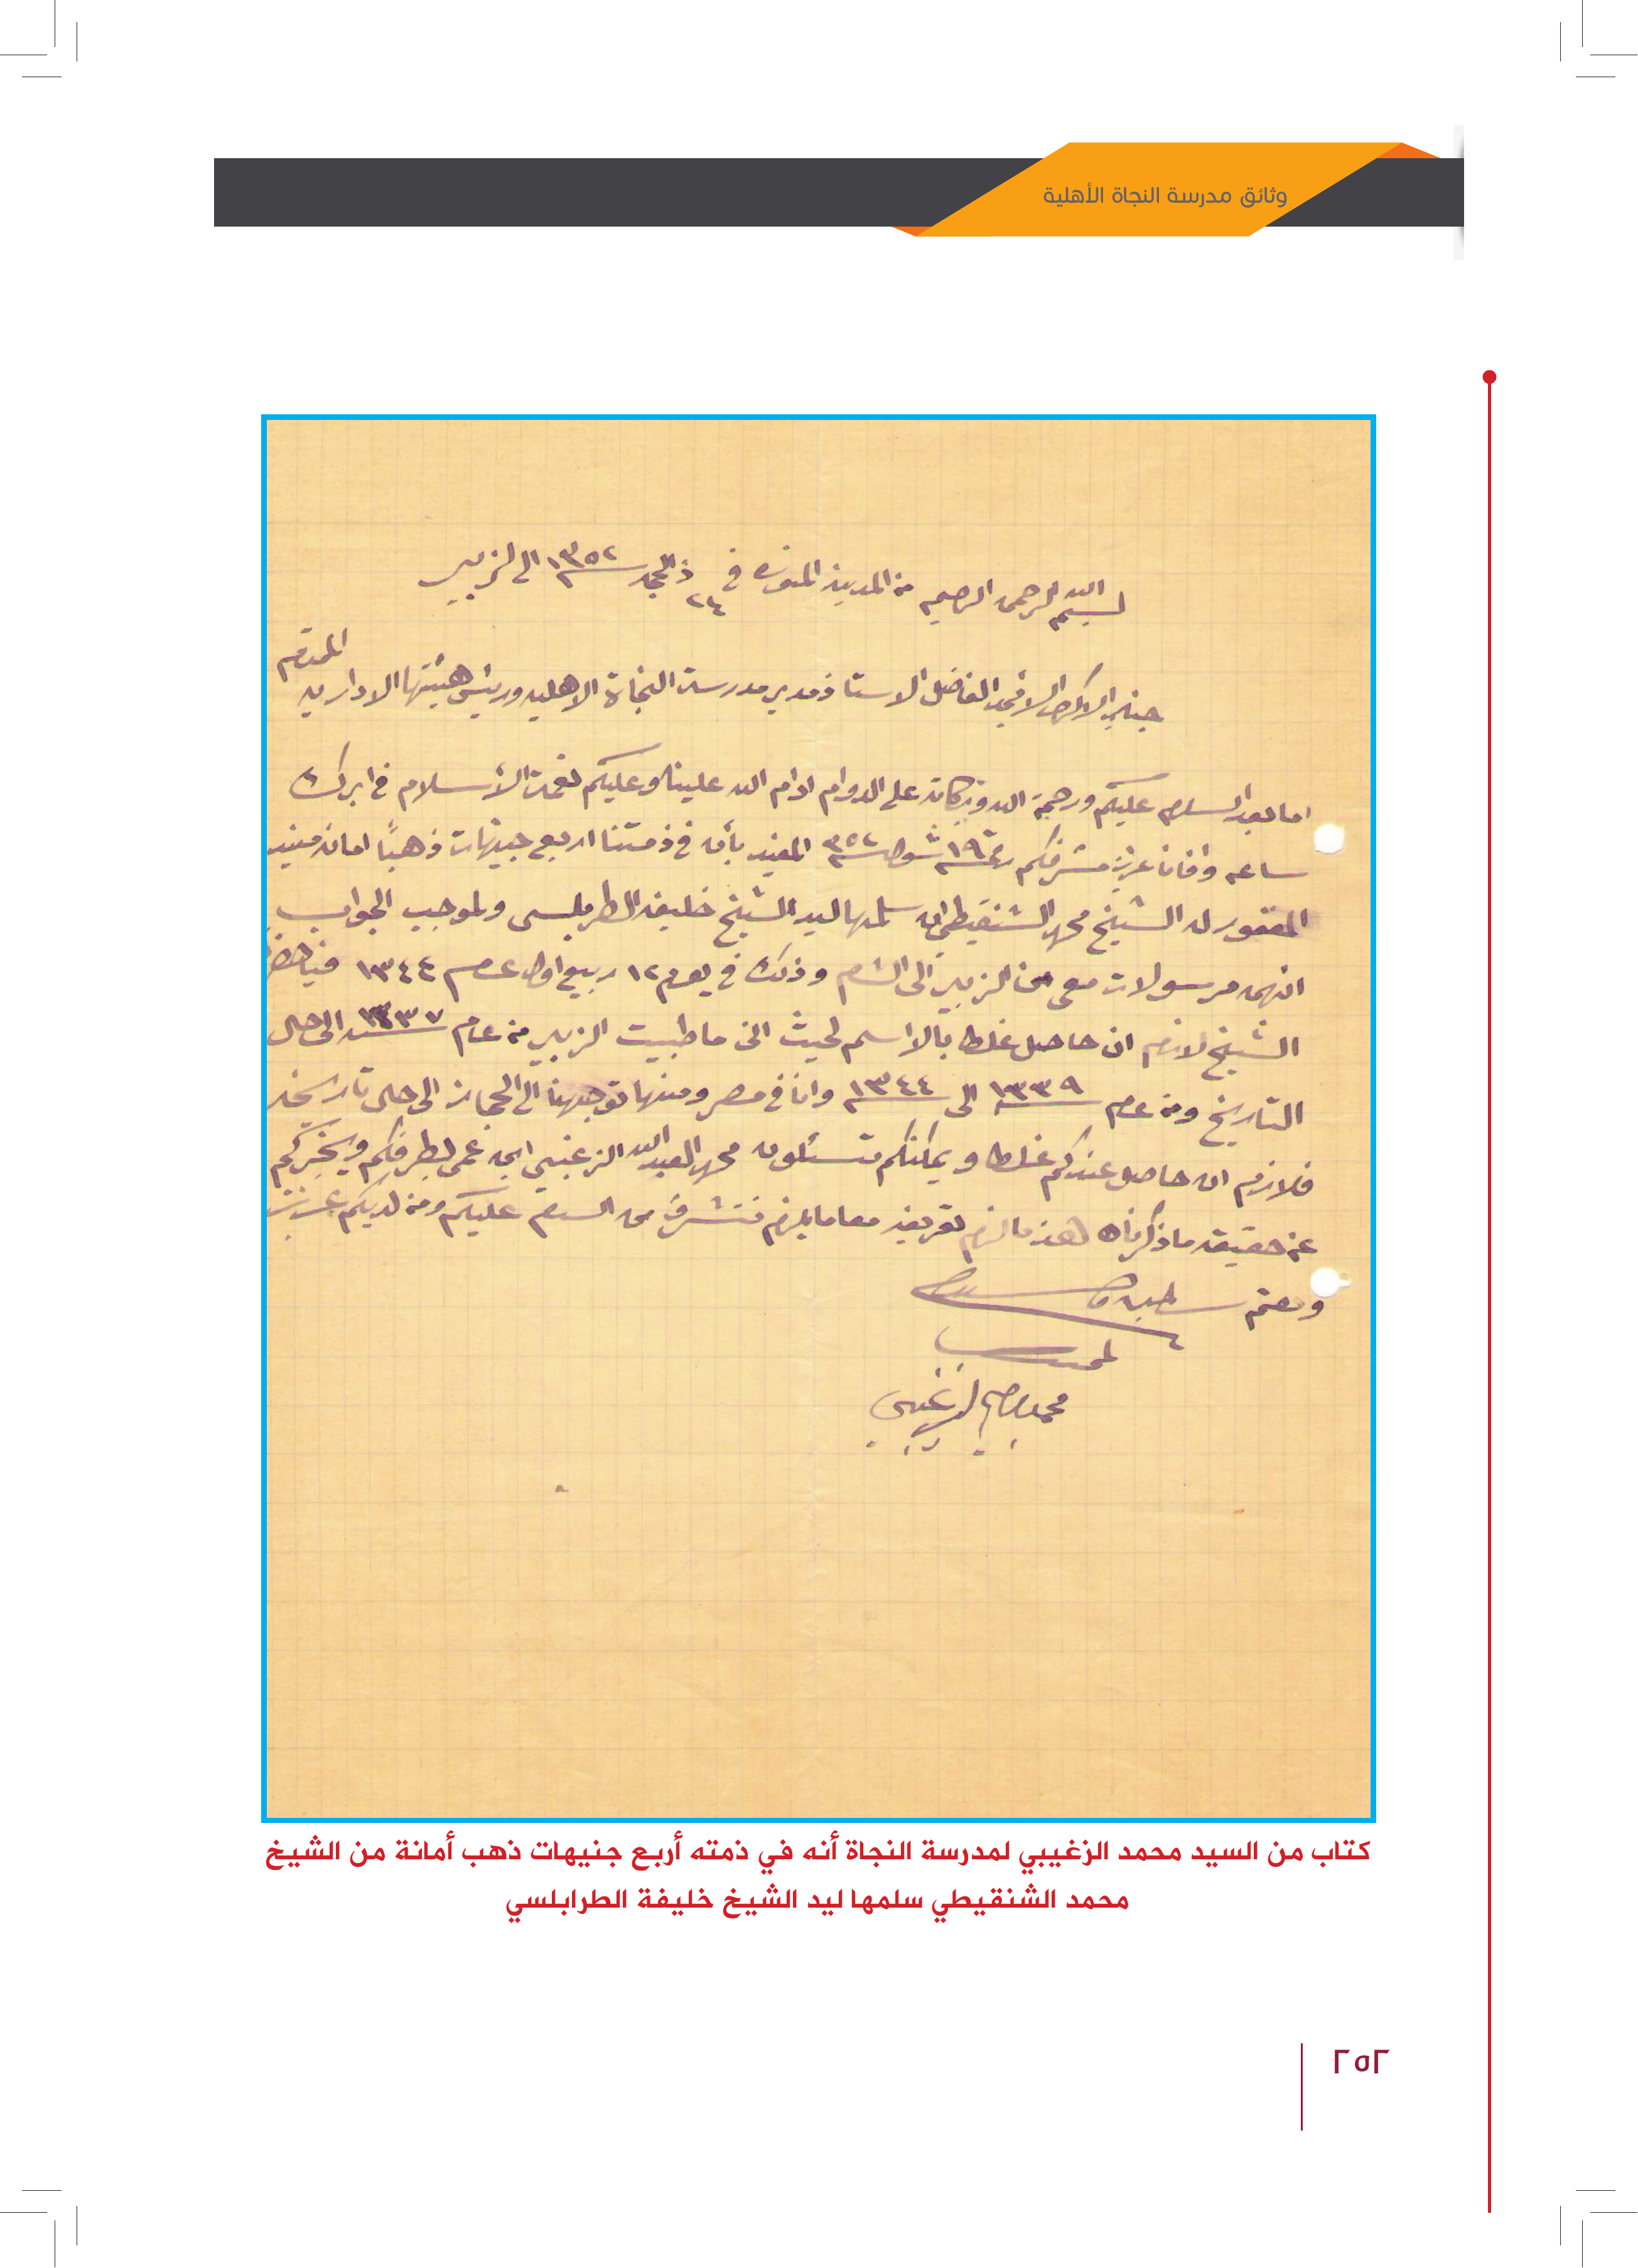 وثائق مدرسة النجاة الأهلية
بسم الله الرحمن الرحيم من المدينه المنوره في ٢٤ ذالحجه ١٣٥٢ الى الزبير
جناب الاكرم الافخم الفاضل الاستاذ مدير مدرسة النجاة الاهليه ورئيس هيئتها الاداريه المحترم
اما بعد السلام عليكم ورحمة الله وبركاته على الدوام ادام الله علينا وعليكم نعمة الأسلام في ابرك
ساعه وافانا عزيز مشرفكم رقم ١٩ شوال ٣٥٢ المفيد بأن في ذمتنا اربع جنيهات ذهبًا امانه من يد
المغفور له الشيخ محمد الشنقيطي ان سلمها ليد الشيخ خليفه الطرابلسي ولموجب الجواب
انهن مرسولات معي من الزبير الى الشام وذلك في يوم ١٢ ربيع اول عام ١٣٤٤ فيا حضرة
الشيخ لازم ان حاصل غلط بالاسم لحيث انى ما طبيت الزبير من عام ١٣٣٧ الى حال
التاريخ ومن عام ١٣٣٩ الى ١٣٤٤ وانا في مصر ومنها توجهنا الى الحجاز الى حال تاريخه
فلازم ان حاصل عندكم غلط و يمكنكم تسئلون محمد العبد الله الزغيبي ابن عمي بطرفكم ويخبركم
عن حقيقه ما ذكرناه هذا مالزم تعريفه مع ما يلزم نتشرف من السلام عليكم ومن لديكم عزيز
ودمتم سالمين
المحب
محمد الزغيبي
كتاب من السيد محمد الزغيبي لمدرسة النجاة أنه في ذمته أربع جنيهات ذهب أمانة من الشيخ
محمد الشنقيطي سلمها ليد الشيخ خليفة الطرابلسي
٢٥٢